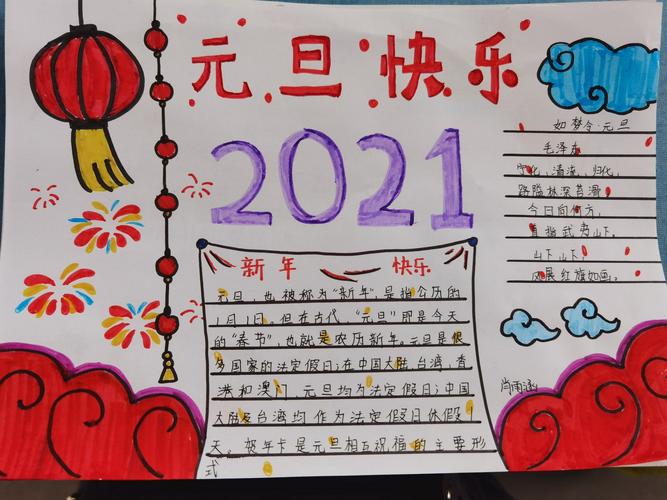 元旦快乐
2021
如梦令·元旦
毛泽东
宁化、清流、归化,
路隘林深苔滑。
今日向何方,
直指武夷山下。
山下山下,
风展红旗如画。
新年 快乐
元旦,也被称为“新年”,是指公历的
1月1日。但在古代,“元旦”即是今天
的“春节”,也就是农历新年。元旦是很
多国家的法定假日;在中国大陆、台湾、香
港和澳门,元旦均为法定假日;中国
大陆及台湾均作为法定假日休假1
天。贺年卡是元旦相互祝福的主要形
式
肖雨涵